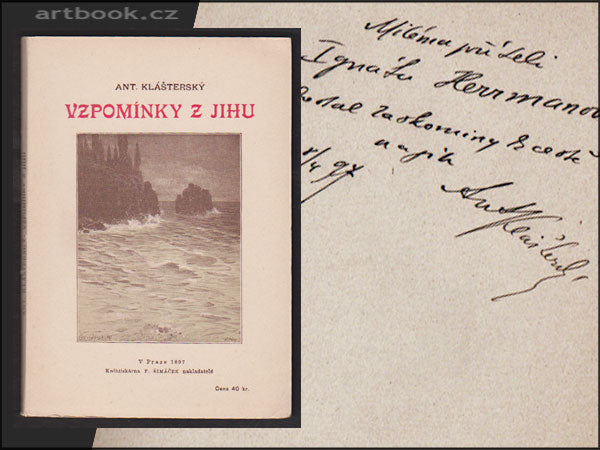 artbook.cz
ANT. KLÁŠTERSKÝ
VZPOMÍNKY Z JIHU
V Praze 1897
Knihtiskárna F. ŠIMÁČEK nakladatel
Cena 40 kr.
Milému příteli
Ignátu Herrmanov
na jih
Ant Klášterský